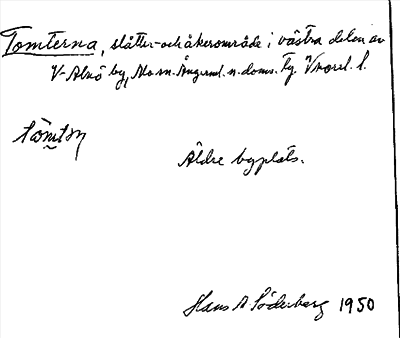 Tomterna, slåtter- och åkerområde i västra delen av
V-Alnö by, Mo sn. Ångerml. n. doms. fg. Vnorrl. l.
tömtƞ
Äldre byplats.
Hans A Söderberg 1950